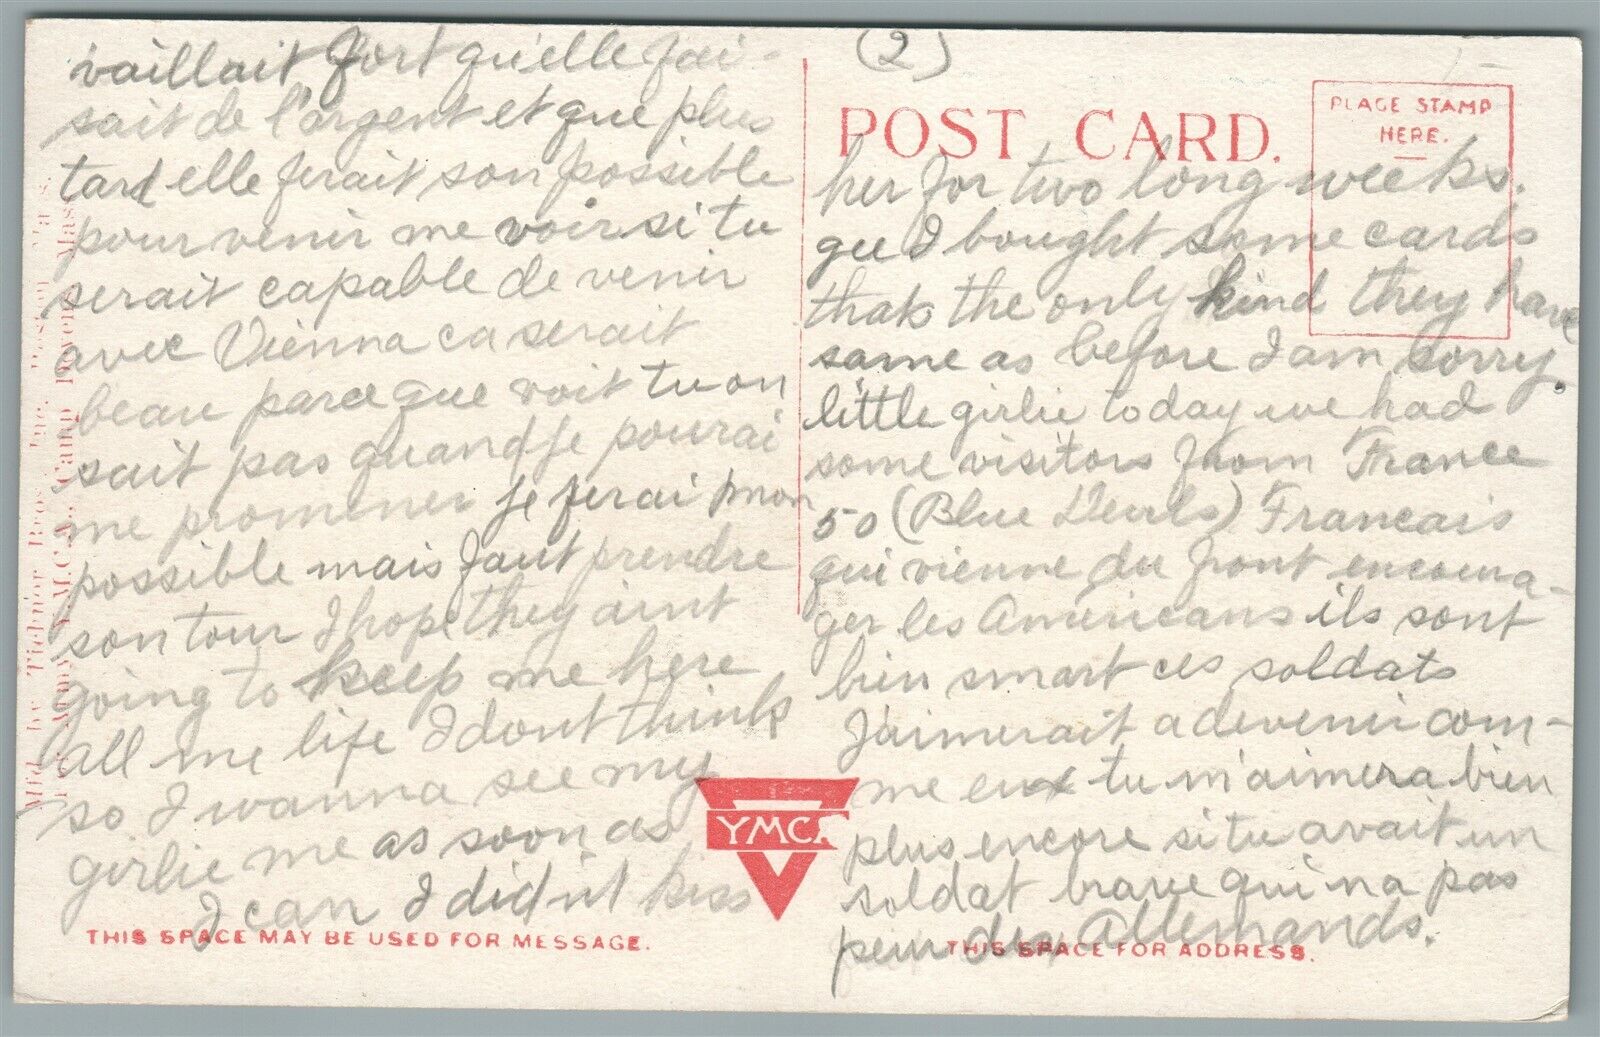 vaillait fort qu'elle fai-
sait de l'argent et que plus
tard elle ferait son possible
pour venir me voir si tu
serait capable de venir
avec Vienna ca serait
beau parce que voit tu on
sait pas quand je pourai
me promener je ferai mon
possible mais faut prendre
son tour I hope they aint
going to keep me here
all me life I dont think
so I wanna see my
girlie me as soon as
I can I didn't kiss
THIS SPACE MAY BE USED FOR MESSAGE.
Mfd. by Tichnor Bros. Inc. Boston Mass.
Army Y.M.C.A., Camp Devens Mass.
(2)
POST CARD.
PLACE STAMP
HERE.
her for two long weeks.
gee I bought some cards
thats the only kind they have
same as before I am sorry.
little girlie today we had
some visitors from France
50 (Blue Devils) Francais
qui vienne du front encoura-
ger les Américans ils sont
bien smart ces soldats
J'aimerait a devenir com-
me eux tu m'aimera bien
plus encore si tu avait un
soldat brave qui na pas
peur des Allemands.
YMCA
THIS SPACE FOR ADDRESS.